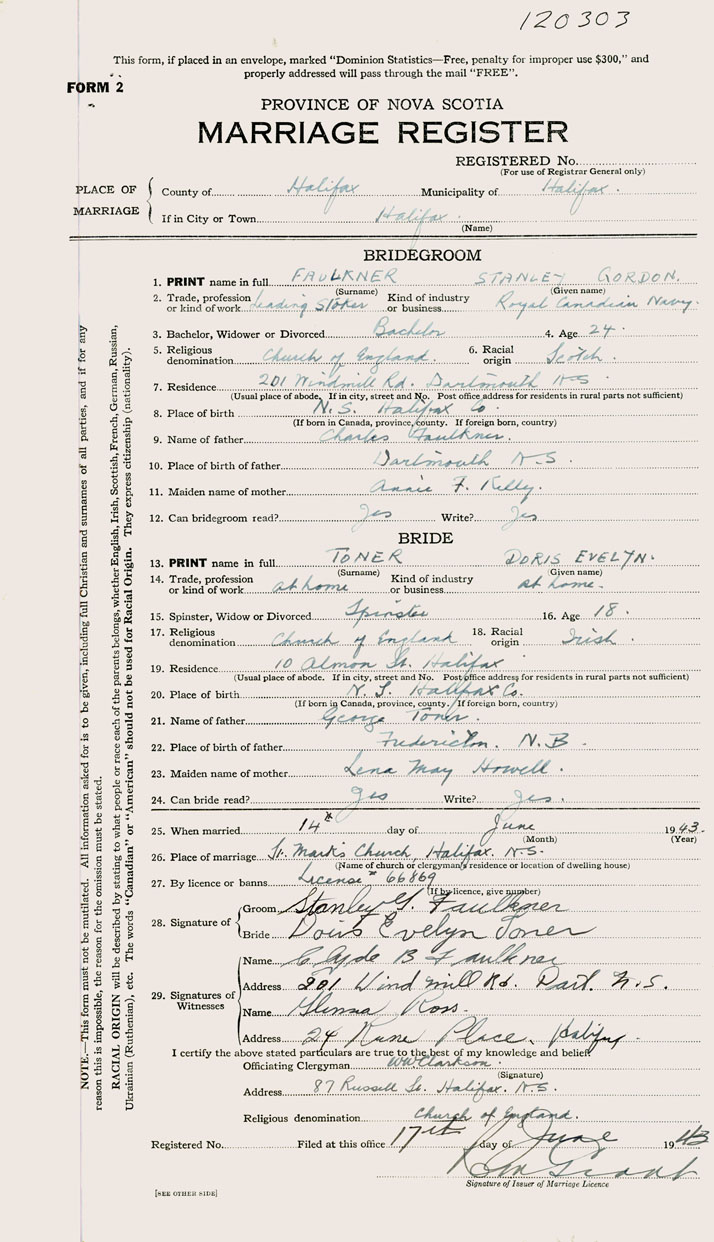 120303
This form, if placed in an envelope, marked "Dominion Statistics—Free, penalty for improper use $300," and
properly addressed will pass through the mail "FREE".
FORM 2
PROVINCE OF NOVA SCOTIA
MARRIAGE REGISTER
REGISTERED No.
(For use of Registrar General only)
PLACE OF MARRIAGE
County of Halifax Municipality of Halifax.
If in City or Town Halifax.
(Name)
BRIDEGROOM
1. PRINT name in full FAULKNER STANLEY GORDON.
(Surname) (Given name)
2. Trade, profession or kind of work Leading Stoker Kind of industry or business Royal Canadian Navy.
3. Bachelor, Widower or Divorced Bachelor 4. Age 24
5. Religious denomination Church of England. 6. Racial origin Scotch.
7. Residence 201 Windmill Rd. Dartmouth N.S
(Usual place of abode. If in city, street and No. Post office address for residents in rural parts not sufficient)
8. Place of birth N.S. Halifax Co.
(If born in Canada, province, county. If foreign born, country)
9. Name of father Charles Faulkner.
10. Place of birth of father Dartmouth N.S.
11. Maiden name of mother Annie F. Kelly.
12. Can bridegroom read? Yes Write? Yes
BRIDE
13. PRINT name in full TONER DORIS EVELYN.
(Surname) (Given name)
14. Trade, profession or kind of work at home Kind of industry or business at home.
15. Spinster, Widow or Divorced Spinster 16. Age 18.
17. Religious denomination Church of England 18. Racial origin Irish.
19. Residence 10 Almon St. Halifax
(Usual place of abode. If in city, street and No. Post office address for residents in rural parts not sufficient)
20. Place of birth N.S. Halifax Co.
(If born in Canada, province, county. If foreign born, country)
21. Name of father George Toner.
22. Place of birth of father Fredericton. N.B.
23. Maiden name of mother Lena May Howell.
24. Can bride read? Yes Write? Yes.
25. When married 14th day of June 1943.
(Month) (Year)
26. Place of marriage St. Mark's Church, Halifax. N.S.
(Name of church or clergyman's residence or location of dwelling house)
27. By licence or banns License # 66869
(If by licence, give number)
28. Signature of
Groom Stanley G. Faulkner
Bride Doris Evelyn Toner
29. Signatures of Witnesses
Name Clyde B Faulkner
Address 201 Wind mill Rd. Dart. N.S.
Name Glenna Ross.
Address 24 Place, Halifax.
I certify the above stated particulars are true to the best of my knowledge and belief.
Officiating Clergyman WW Clarkson
(Signature)
Address 87 Russell St. Halifax. N.S.
Religious denomination Church of England.
Registered No. Filed at this office 17th day of June 1943
Grant
Signature of Issuer of Marriage Licence
[SEE OTHER SIDE]
NOTE.—This form must not be mutilated. All information asked for is to be given, including full Christian and surnames of all parties, and if for any
reason this is impossible, the reason for the omission must be stated.
RACIAL ORIGIN will be described by stating to what people or race each of the parents belongs, whether English, Irish, Scottish, French, German, Russian,
Ukrainian (Ruthenian), etc. The words "Canadian" or "American" should not be used for Racial Origin. They express citizenship (nationality).